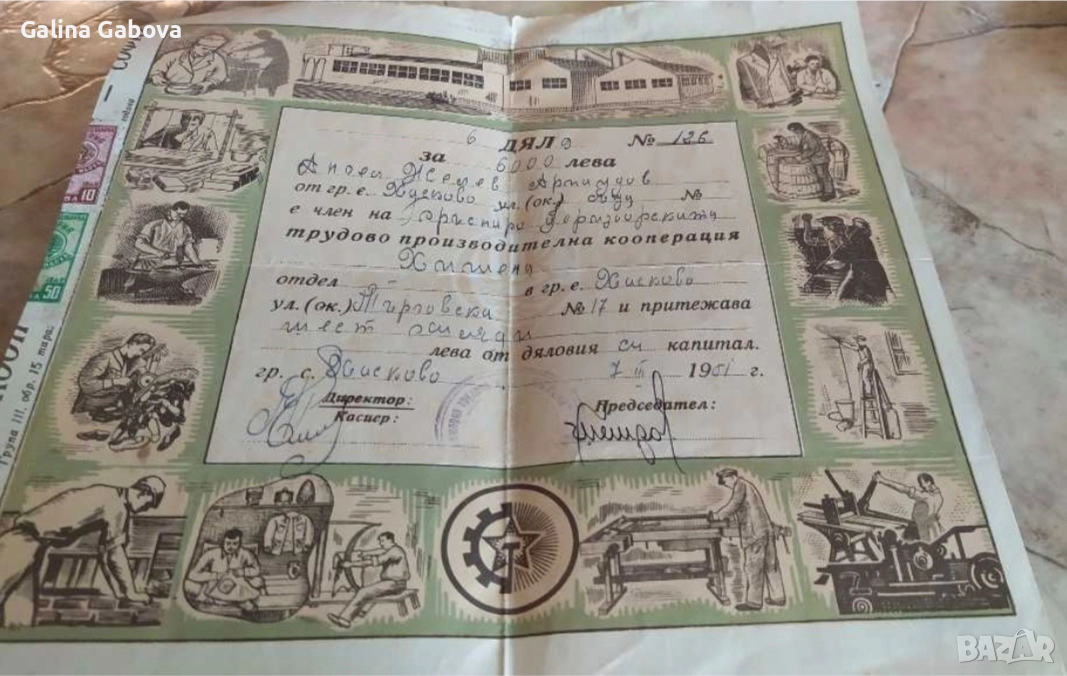 Galina Gabova
6 ДЯЛ № 126
за 6000 лева
Желев
от гр. с. Хасково ул. (ок.) №
е член на
трудово производителна кооперация
отдел в гр. с. Хасково
ул. (ок.) Търговска № 17 и притежава
шест хиляди
лева от дяловия си капитал.
гр. с. Хасково 7 III 1951 г.
Директор: Председател:
Касиер:
10
50
Група III, обр. 15
BAZAR